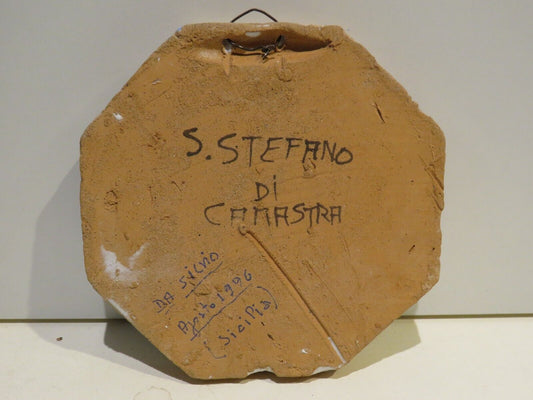 S. STEFANO
Di
CAMASTRA
DA SILVIO
Agosto 1996
(Sicilia)